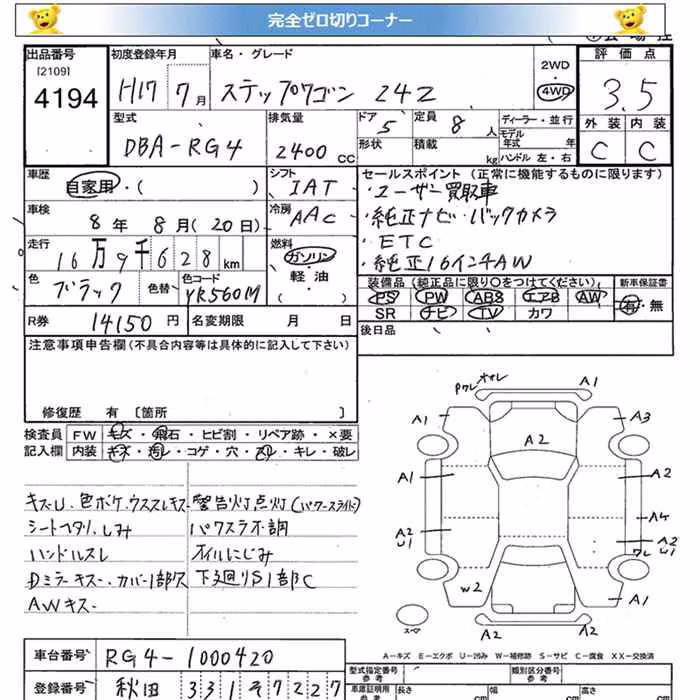 完全ゼロ切りコーナー
出品番号 初度登録年月 車名・グレード 2WD 評価点
[2109]
4194 H17 7月 ステップワゴン 24Z 4WD 3.5
型式 排気量 ドア 定員 ディーラー・並行 外装 内装
DBA-RG4 2400CC 5 8人 モデル年式 年式
形状 積載 kg ハンドル 左・右 C C
車歴 シフト セールスポイント(正常に機能するものに限ります)
自家用・( ) IAT ・ユーザー買取車
車検 冷房 ・純正ナビ・バックカメラ
8年 8月(20日) AAC ・ETC
走行 燃料 ・純正16インチAW
16万9千628km ガソリン
軽・油
( )
色 色替 色コード 装備品(純正品に限り○をつけてください) 新車保証書
ブラック YR560M PS PW ABS エアB AW 有・無
SR ナビ TV カワ
R券 14150円 名変期限 月 日 後日品
注意事項申告欄(不具合内容等は具体的に記入して下さい)
修復歴 有 [箇所 ]
検査員 FW キズ・飛石・ヒビ割・リペア跡・×要
記入欄 内装 キズ・汚レ・コゲ・穴・スレ・キレ・破レ
キズU.色ボケ.ウススレキズ 警告灯点灯(パワースライド)
シートヘタリ.しみ パワスラ不調
ハンドルスレ オイルにじみ
Dミラーキズ.カバー1部欠 下廻りS1部C
AWキズ
Pワレ A1
A1 A2 A3
A1 A2
A4
A2 U1 A2 U1
ワレ
W2 A1
スペア A2 A2
A=キズ E=エクボ U=凹み W=補修跡 S=サビ C=腐食 XX=交換済
車台番号 RG4-1000420
型式指定番号 類別区分番号
参考 参考
登録番号 秋田 331 そ 7227
車庫証明用 参考 長さ cm 幅 cm 高さ cm